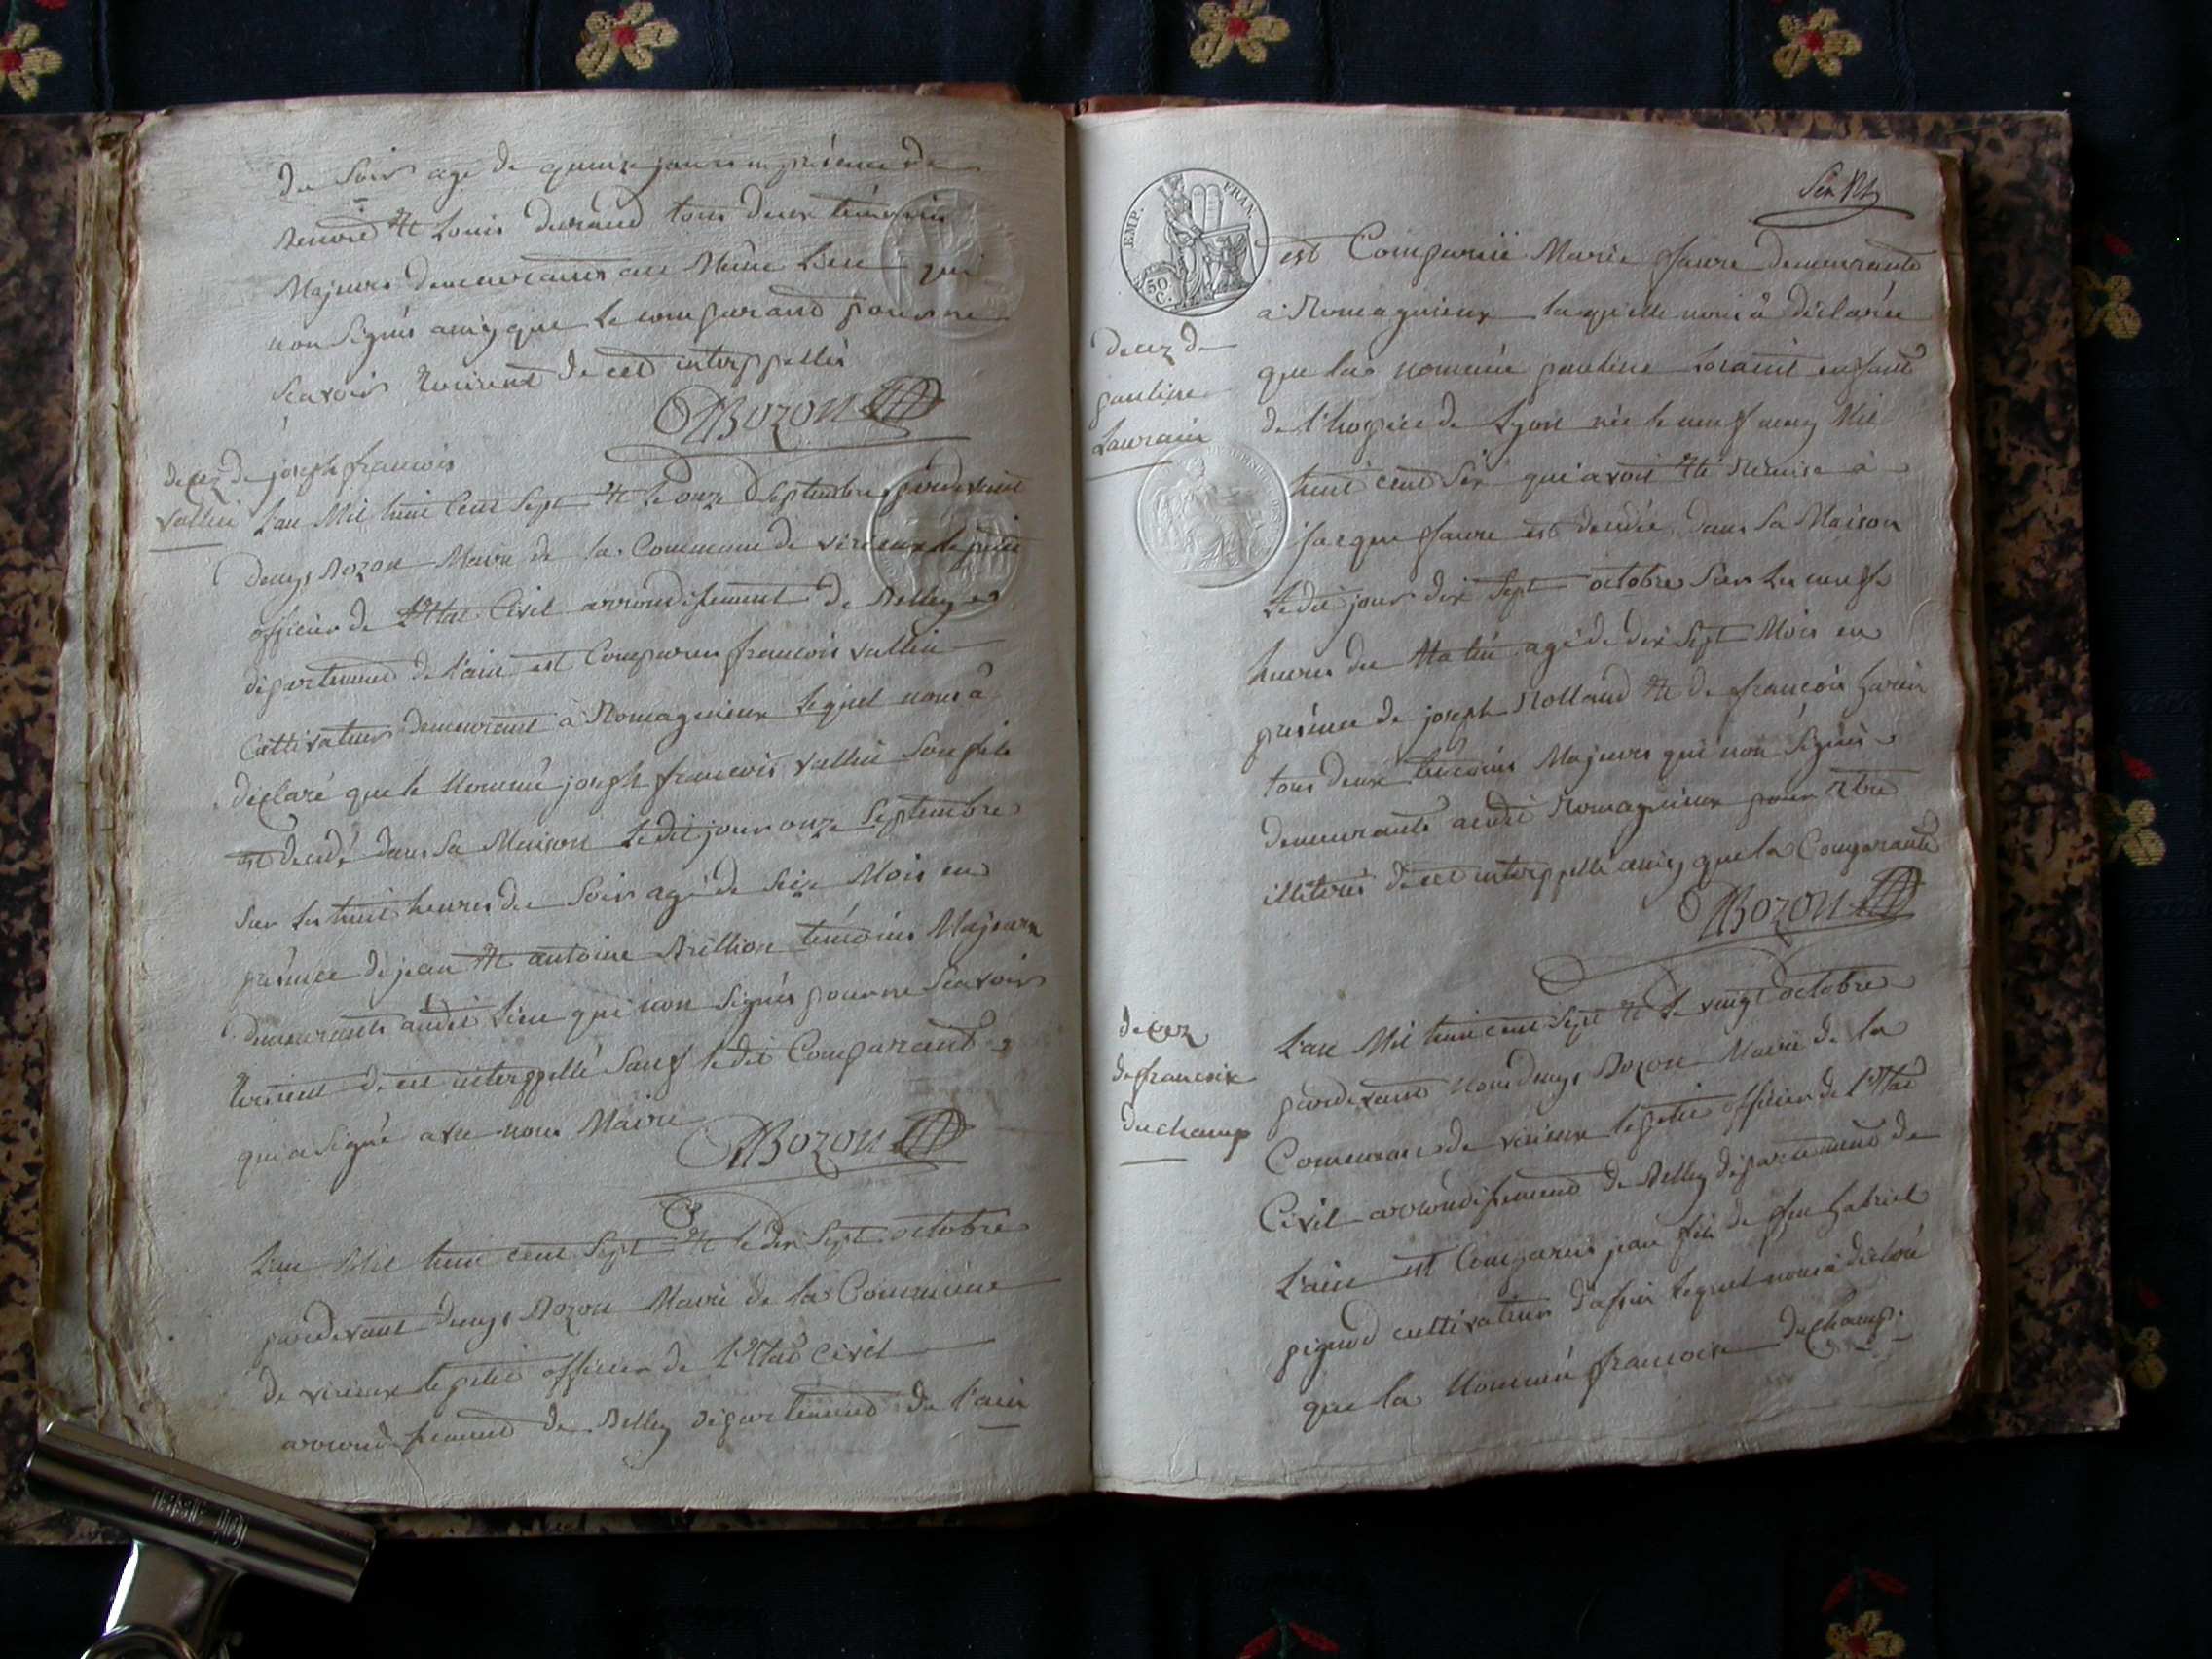 du soir agé de quinze jours en présence de
Benoid et Louis durand tous deux témoins
Majeurs demeurants au Même Lieu qui
non Signés ainsy que le comparand pour ne
Scavoir de ced interppellés
DBozon
decez de joseph francois
vallin
L'an Mil huit Cent Sept et le onze Septembre pardevant
denys Bozon Maire de la Commune de virieux le petit
officier de l'Etat Civil arrondissement de Belley
département de L'ain est Comparu françois vallin
Cultivateur demeurant à Romagnieux lequel nous à
déclaré que le Nommé joseph francois vallin Son fils
est decedé dans Sa Maison Ledit jour onze Septembre
Sur Les huit heures du Soir agé de Seize Mois en
présence de jean et antoine Brillion témoins Majeurs
demeurants audit Lieu qui non Signés pour ne Scavoir
de ce interppellé Sauf ledit Comparant
qui a Signé avec nous Maire
DBozon
L'an Mil huit cent Sept et le dix Sept octobre
pardevant denys Bozon Maire de la Commune
de virieux le petit officier de l'Etat Civil
arrondissement de Belley département de l'ain
EMP. FRAN.
50 C.
est Comparüe Marie faure demeurante
a Romagnieux laquelle nous à déclarée
decez de
pauline
Laurain
que la nomée pauline Lorain enfant
de l'hospice de Lyon née le neuf may Mil
huit cent Six qui avoit été Remise à
jacque faure est decedée dans Sa Maison
Ledit jour dix Sept octobre Sur Les neuf
heures du Matin agé de dix Sept Mois en
présence de joseph Rolland et de françois
tous deux témoins Majeurs qui non Signés
demeurants audit Romagnieux pour etre
illiterés de ce interppellé ainsy que la Comparante
DBozon
decez
de francoise
duchamp
L'an Mil huit cent Sept et le vingt octobre
pardevant nous denys Bozon Maire de la
Commune de virieux le petit officier de l'Etat
Civil arrondissement de Belley département de
L'ain est Comparus jean fils de feu gabriel
pignod cultivateur d'assin lequel nous à déclaré
que la Nommée francoise duchamp